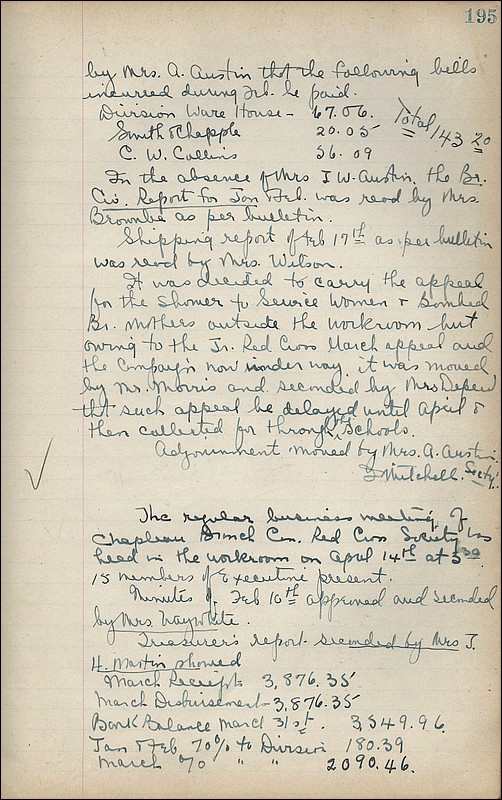 195
by Mrs. A. Austin that the following bills
incurred during Feb. be paid.
Division Ware House - 67.06. Total 143 20
Smith & Chapple 20.05
C. W. Collins 56.09
In the absence of Mrs J W. Austin, the Br.
Civ. Report for Jan & Feb. was read by Mrs.
as per bulletin.
Shipping report of Feb 17th as per bulletin
was read by Mrs. Wilson.
It was decided to carry the appeal
for the Shower to Service Women & Bombed
Br. Mothers outside the workroom but
owing to the Jr. Red Cross March appeal and
the Campaign now under way, it was moved
by Mr. Morris and seconded by Mrs
that such appeal be delayed until April &
then collected for through the Schools.
Adjournment moved by Mrs. A. Austin.
Mitchell. Secty.
The regular business meeting of
Chapleau Branch Can. Red Cross Society was
held in the workroom on April 14th at 3 30
15 members of Executive present.
Minutes of Feb 10th approved and seconded
by Mrs.
Treasurer's report seconded by Mrs J.
H. Martin showed
March Receipts 3,876.35
March Disbursements 3,876.35
Bank Balance March 31st. 3,549.96.
Jan & Feb 70% to Division 180.39
March 70 " " 2090.46.